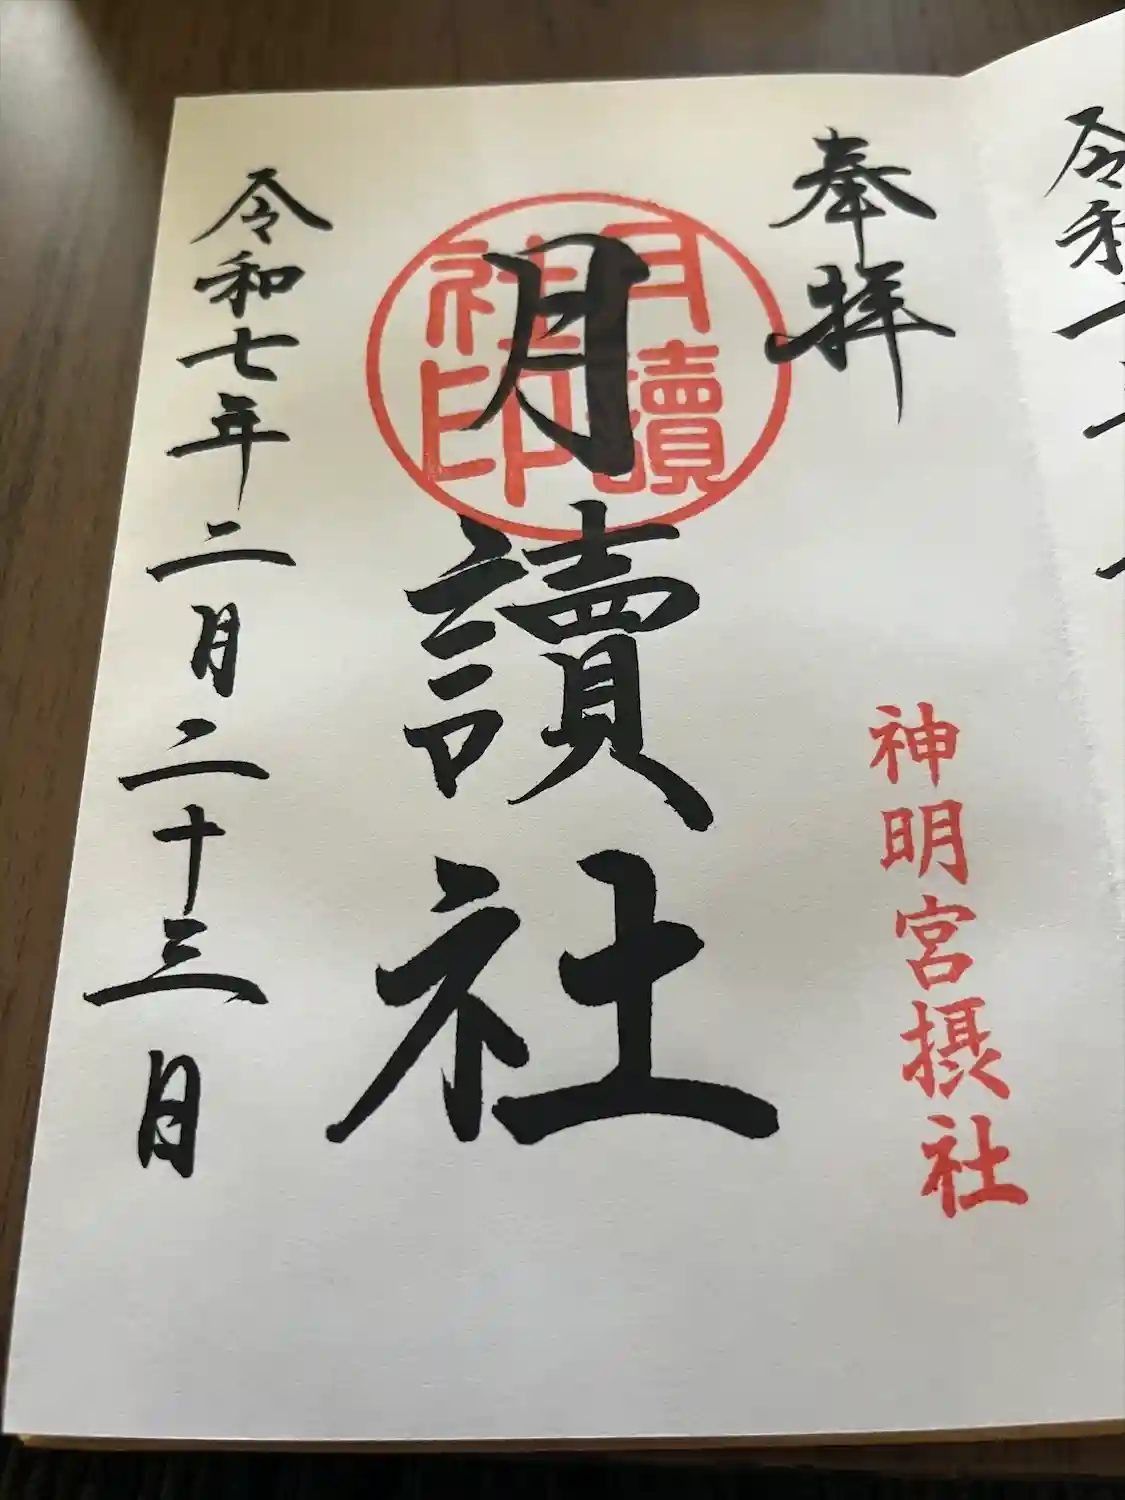 奉拝
神明宮摂社
月讀社印
月讀社
令和七年二月二十三日